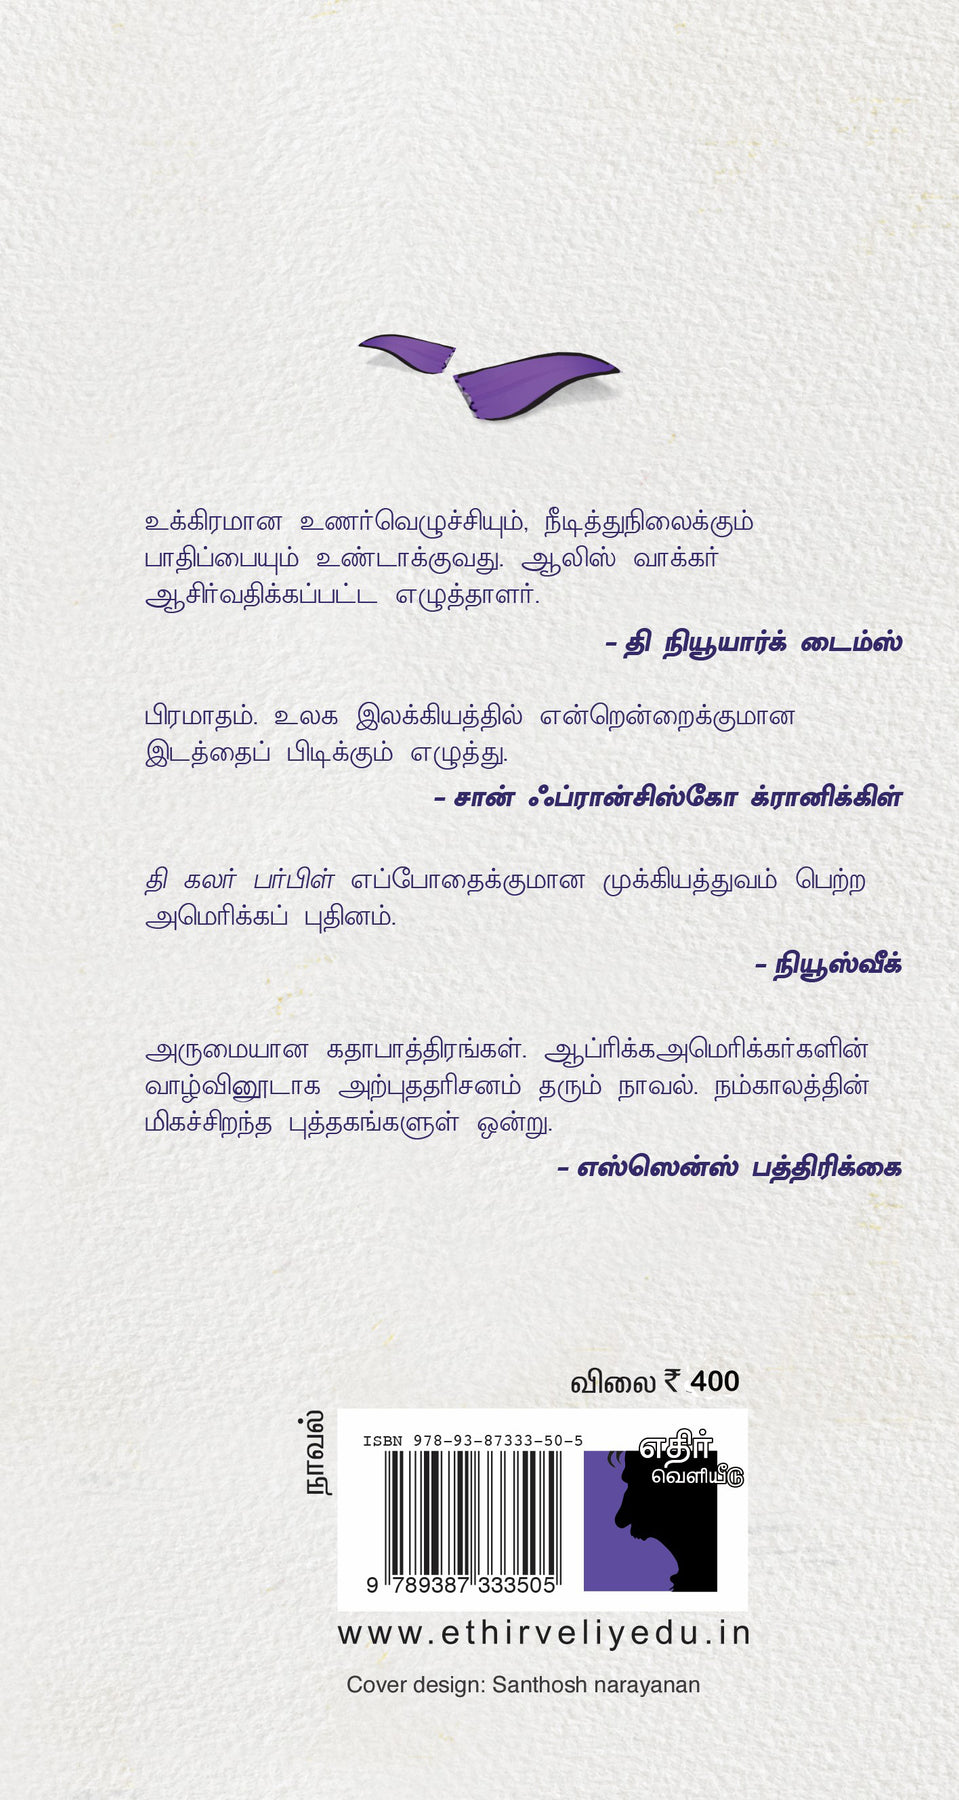 உக்கிரமான உணர்வெழுச்சியும், நீடித்துநிலைக்கும்
பாதிப்பையும் உண்டாக்குவது. ஆலிஸ் வாக்கர்
ஆசிர்வதிக்கப்பட்ட எழுத்தாளர்.
– தி நியூயார்க் டைம்ஸ்
பிரமாதம். உலக இலக்கியத்தில் என்றென்றைக்குமான
இடத்தைப் பிடிக்கும் எழுத்து.
– சான் ஃப்ரான்சிஸ்கோ க்ரானிக்கிள்
தி கலர் பர்பிள் எப்போதைக்குமான முக்கியத்துவம் பெற்ற
அமெரிக்கப் புதினம்.
– நியூஸ்வீக்
அருமையான கதாபாத்திரங்கள். ஆப்ரிக்கஅமெரிக்கர்களின்
வாழ்வினூடாக அற்புததரிசனம் தரும் நாவல். நம்காலத்தின்
மிகச்சிறந்த புத்தகங்களுள் ஒன்று.
– எஸ்ஸென்ஸ் பத்திரிக்கை
விலை ₹ 400
நாவல்
ISBN 978-93-87333-50-5
எதிர்
வெளியீடு
9 789387 333505
www.ethirveliyedu.in
Cover design: Santhosh narayanan